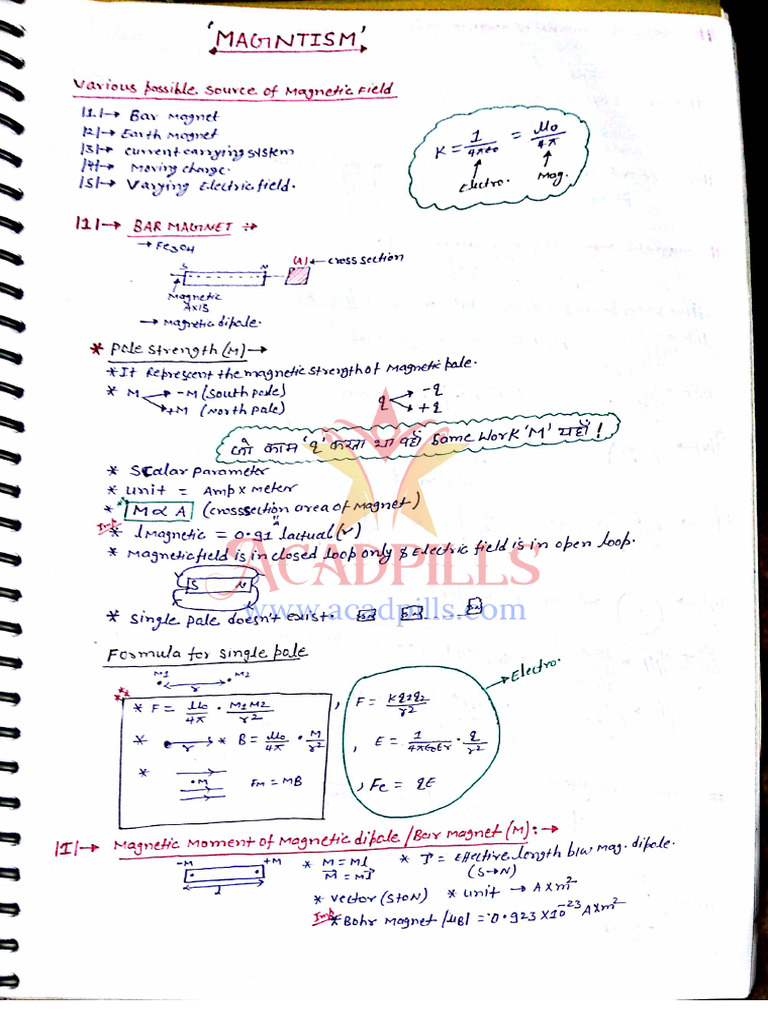 'MAGINTISM'
Various possible source of Magnetic Field
|1|→ Bar Magnet
|2|→ Earth Magnet
|3|→ current carrying system
|4|→ Moving charge.
|5|→ Varying Electric field.
K = 1/4πε0 = μ0/4π
Electro. Mag.
|1|→ BAR MAGNET :→
→ Fe3O4
S N (A) ← cross section
Magnetic
Axis
→ Magnetic dipole.
* Pole strength (M) →
* It Represent the magnetic strength of Magnetic pole.
* M → -M (South pole)
→ +M (North pole)
q → -q
→ +q
जो काम 'q' करता था वहाँ Same Work 'M' यहाँ !
* Scalar parameter
* unit = Amp x meter
* M ∝ A (crosssection area of Magnet)
Imp * l Magnetic = 0.91 lactual (r)
* Magnetic field is in closed loop only & Electric field is in open loop.
ACADPILLS
S N
www.acadpills.com
* single pole doesn't exist.
Formula for single pole
M1 r M2
→ Electro.
* F = μ0/4π · M1M2/r2 , F = Kq1q2/r2
* r * B = μ0/4π · M/r2 , E = 1/4πε0εr · q/r2
* •M FM = MB , Fe = qE
|I|→ Magnetic Moment of Magnetic dipole / Bar magnet (M) :→
-M +M * M = Ml * l = Effective length b/w mag. dipole.
M = Ml (S→N)
l
* vector (S to N) * unit → A x m2
Imp * Bohr Magnet |μB| = 0.923 X 10-23 A x m2